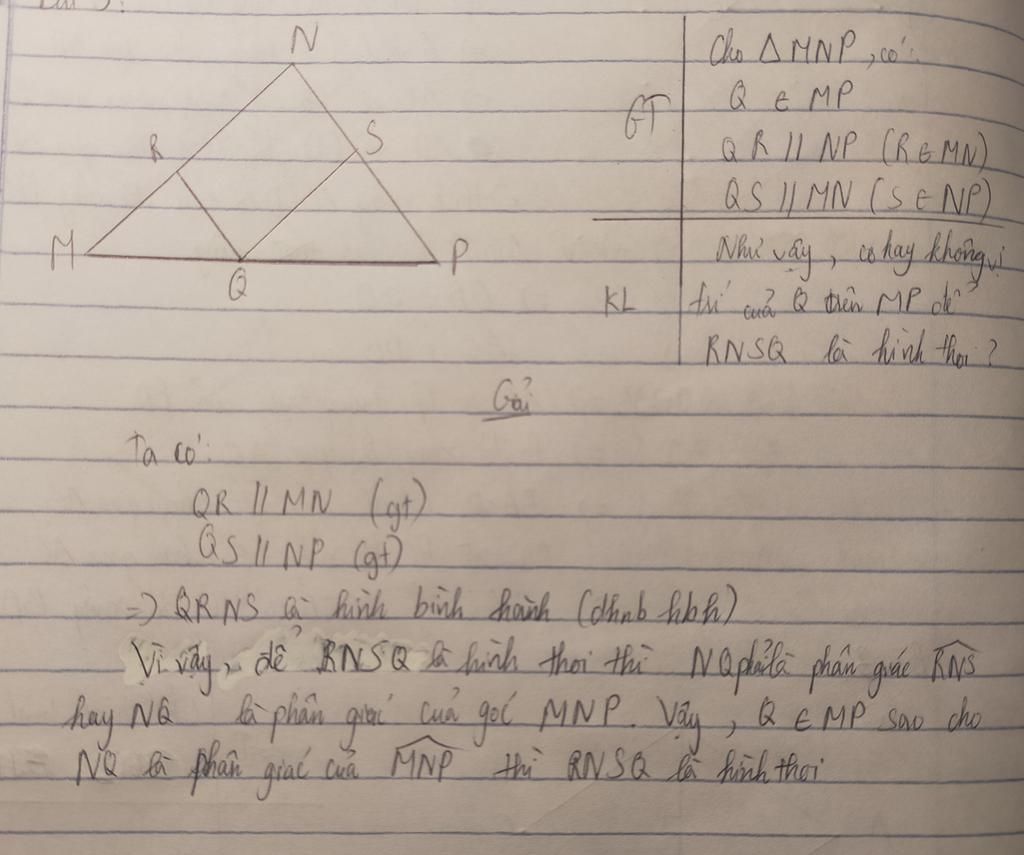 N
R
S
M
Q
P
GT
Cho Δ MNP, có:
Q ∈ MP
QR // NP (R∈MN)
QS // MN (S∈NP)
KL
Như vậy, có hay không vị
trí của Q trên MP để
RNSQ là hình thoi?
Giải
Ta có:
QR // MN (gt)
QS // NP (gt)
=> QRNS là hình bình hành (dhnb hbh)
Vì vậy, để RNSQ là hình thoi thì NQ phải là phân giác RNS
hay NQ là phân giác của góc MNP. Vậy, Q ∈ MP sao cho
NQ là phân giác của MNP thì RNSQ là hình thoi